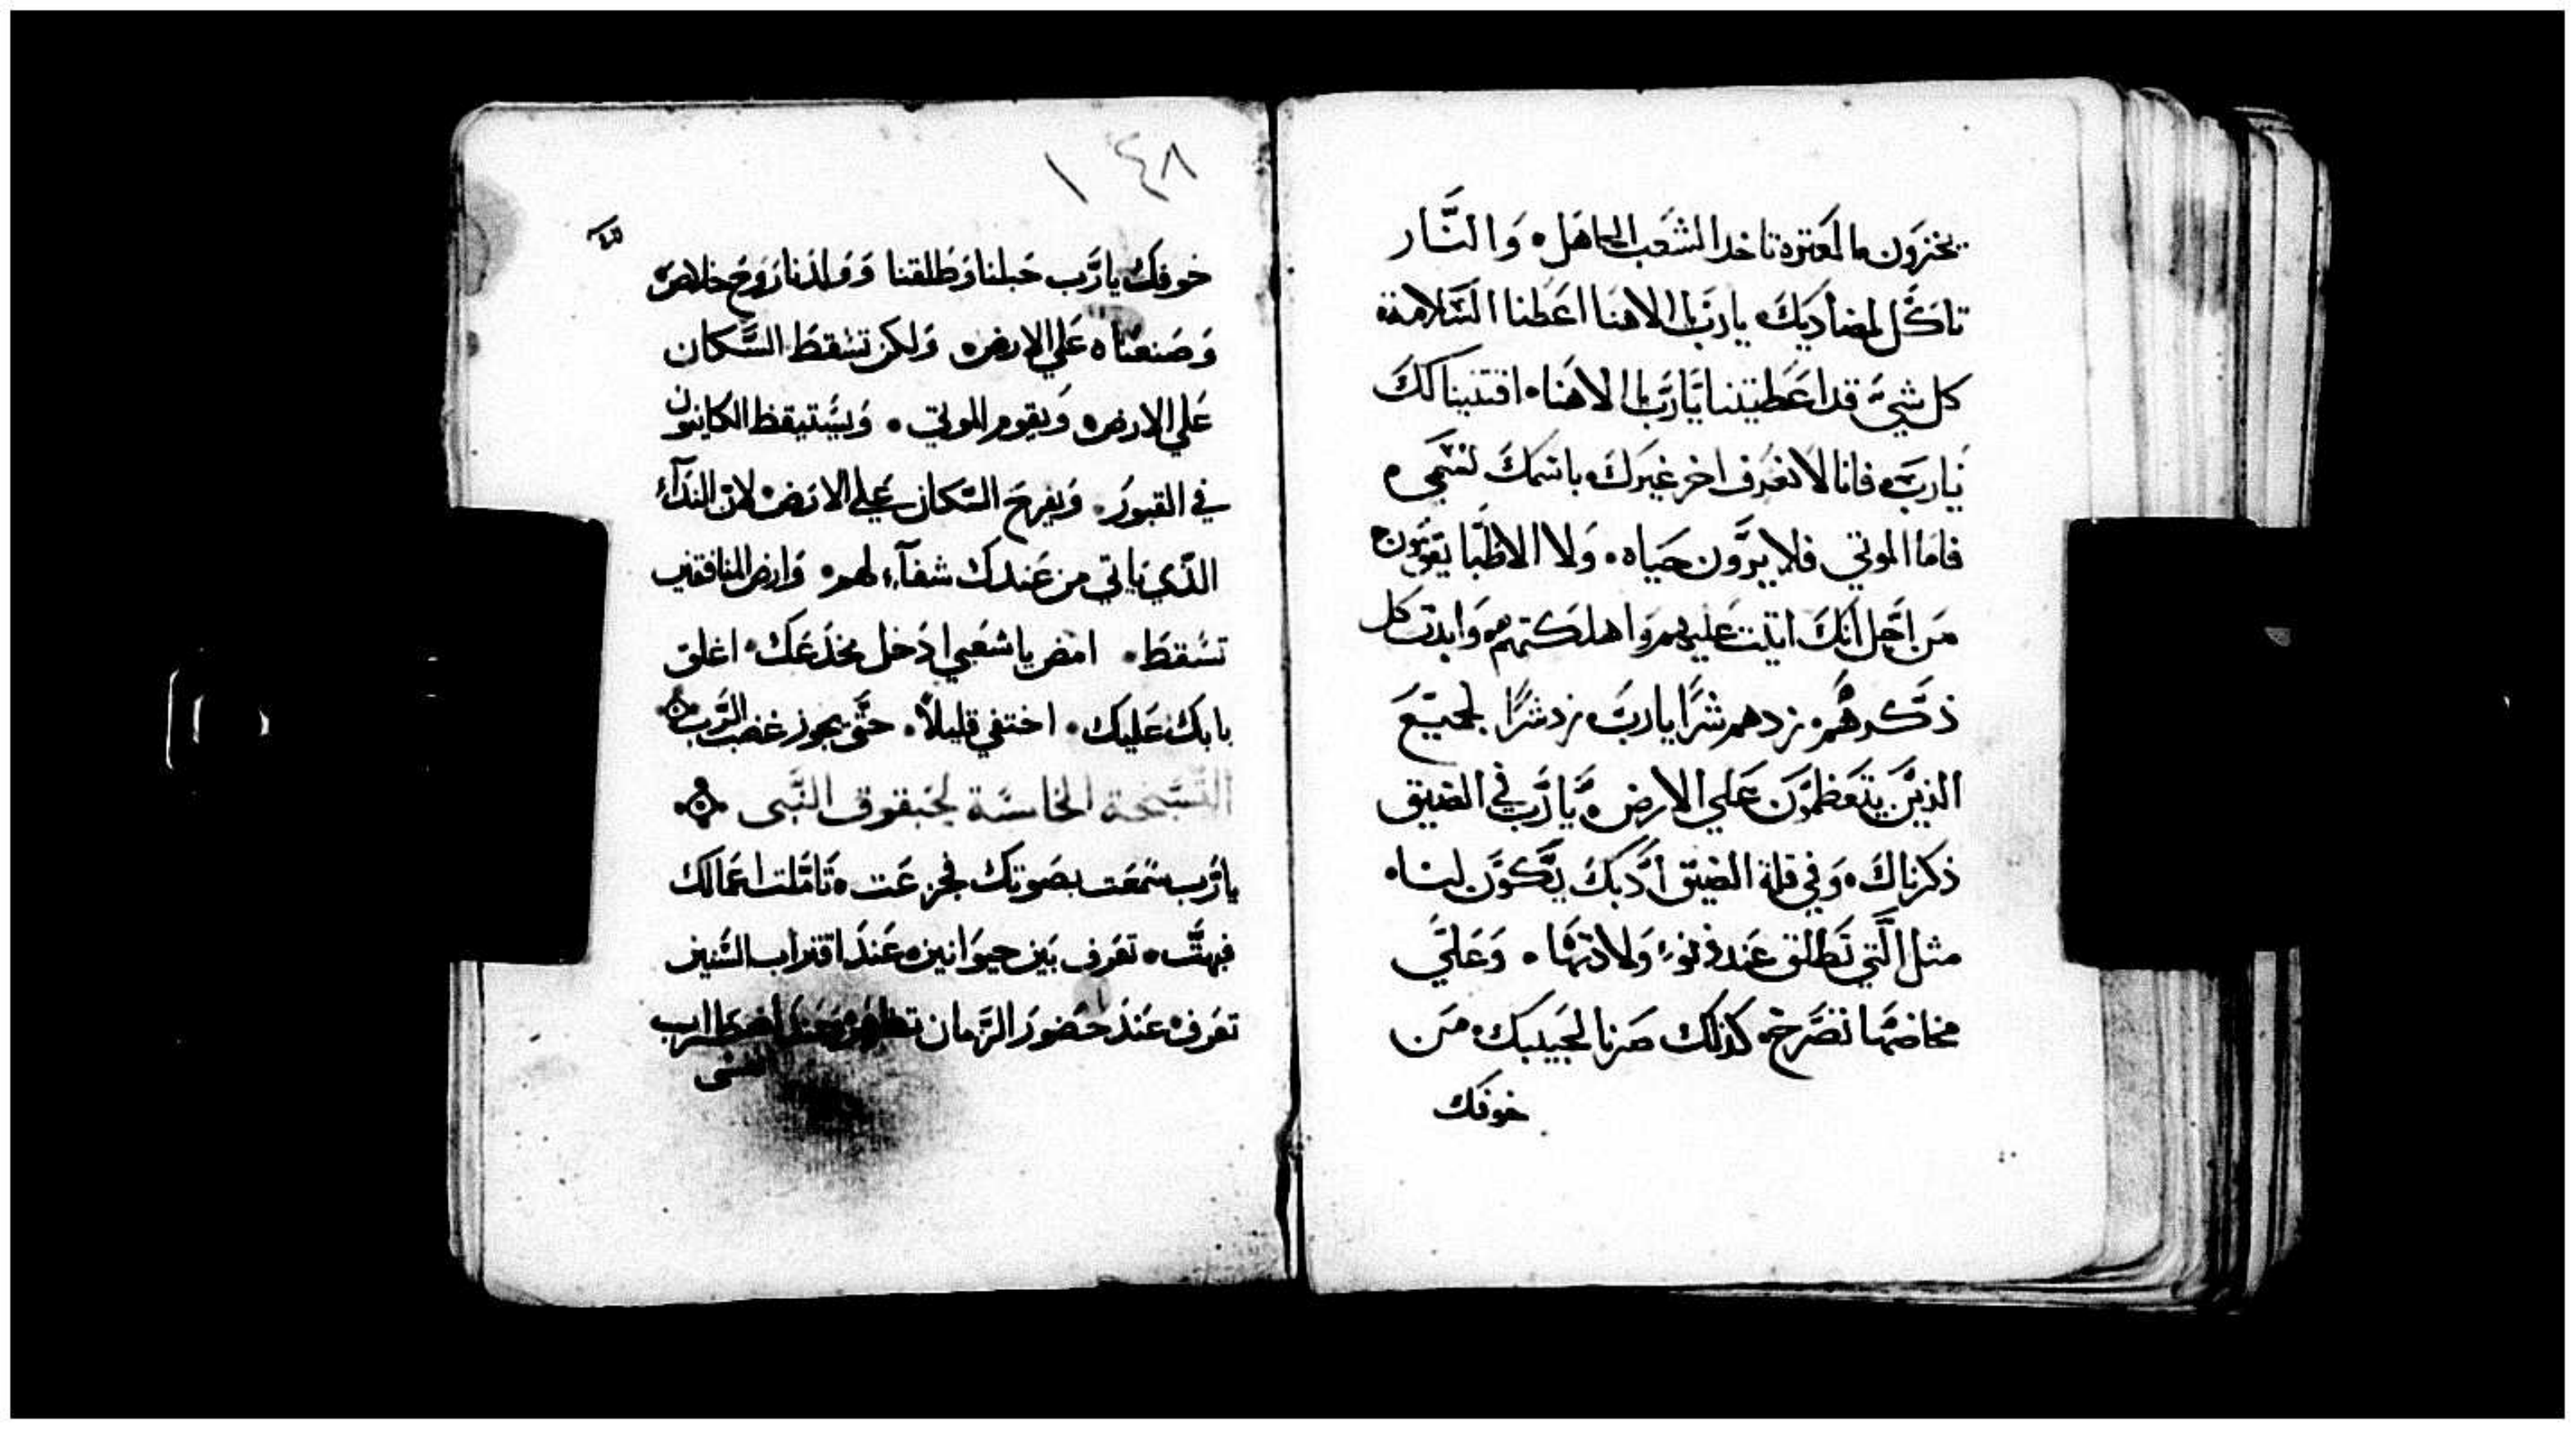 يخزون. المعتزه تاخد الشعب الجاهل. وَالنَّار
تاكل لمضاديك يارب الاهنا اعَطنا السَّلامة.
كل شيَ قد اعَطيتنا يَارَّب الاهنا. اقتنينا لكَ
يَاربّ. فانا لا نعَرف اخر غيركَ باسمكَ نسَّمي.
فامَا الموتي فلا يرَّون حيَاه. وَلا الاطبّا يقيمون
مَن اجَل انَكَ اتيَت عَليهم وَاهلكتهم. وَابدت كل
ذكرهُم. زدهم شرًا يا ربَّ زد شرًا لجميَع
الذيَن يتَعَظمَّون عَلي الارض. يَا رَّب في الضيق
ذكرناكَ. وَفي قلة الضيَق ادَّبكَ يَّكوَّن لنا.
مثل الَّتي تَطلق عَند دنوء وَلادتهَا. وَعَليَ
مخاضهَا تصَرخ. كذلك صَرنا لحَبيبك. مَن
خوفك
١٤٨
خوفك يا رَّب حَبلنا وَطَلقنا وَوَلدَنا رَوحَ خلاصَ.
وَصَنعَناه عَلي الارض. وَلكن تسَقطَ السَّكان
عَلي الارض. وَيقوم الموتي. وَيسَتيقظ الكاينون
في القبورَ. وَيفرحَ السَّكان عَلي الارَض. لان النداَء
الذّي يَاتي من عَندك شفآء لهم. وَارض المنافقين
تسَقطَ. امَض يا شعَبي ادَخل مخدَعَك. اغلق
بابك عَليك. اختفي قليلاً. حتَّى يجوز غضب الرَّب.
التسَّبحة الخامسَة لحَبقوق النَّبى
يا رَّب سَمعَت بصَوتك فجزعَت. تَامَّلت اعَمالك
فبهتَّ. تعَرف بَين حيوَانين. عَندَ اقتراب السَّنين
تعَرف. عَندَ حضَورَ الزَّمان تظهر. عَند اضطراب
نفسى